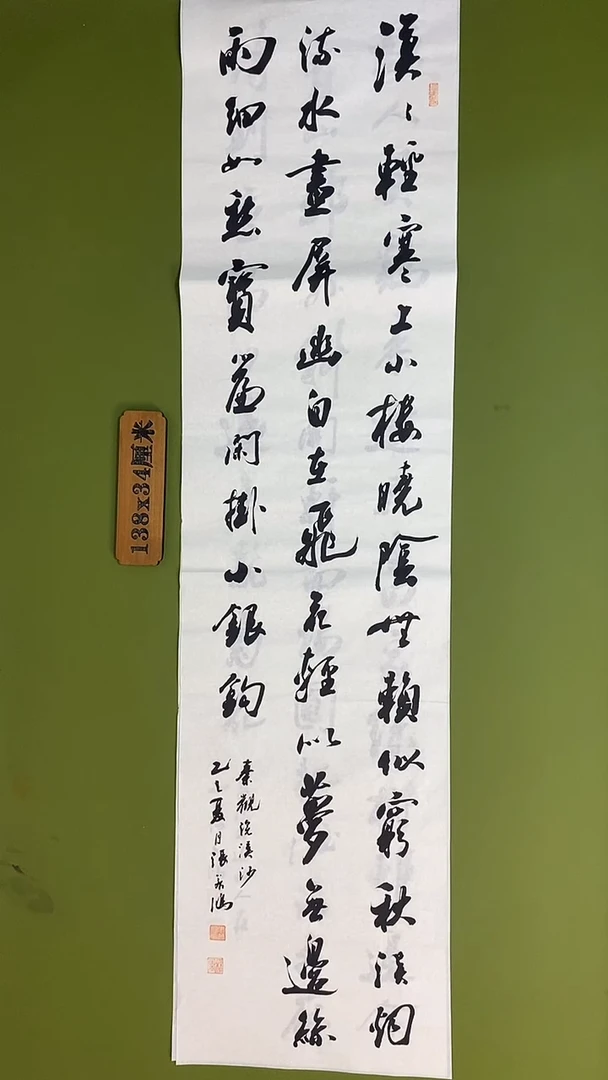 漠〻輕寒上小樓曉陰無賴似窮秋淡烟
流水畫屏幽自在飛花輕似夢無邊絲
雨細如愁寶簾閑掛小銀鉤
秦觀浣溪沙
乙巳夏月張
138x34厘米